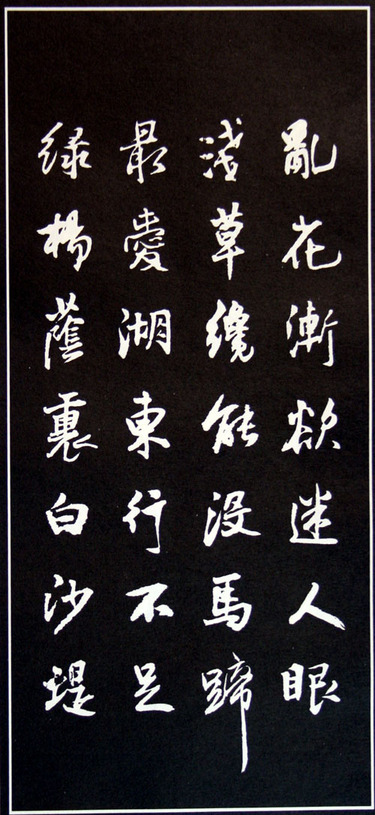 亂花漸欲迷人眼
淺草纔能沒馬蹄
最愛湖東行不足
綠楊蔭裏白沙堤